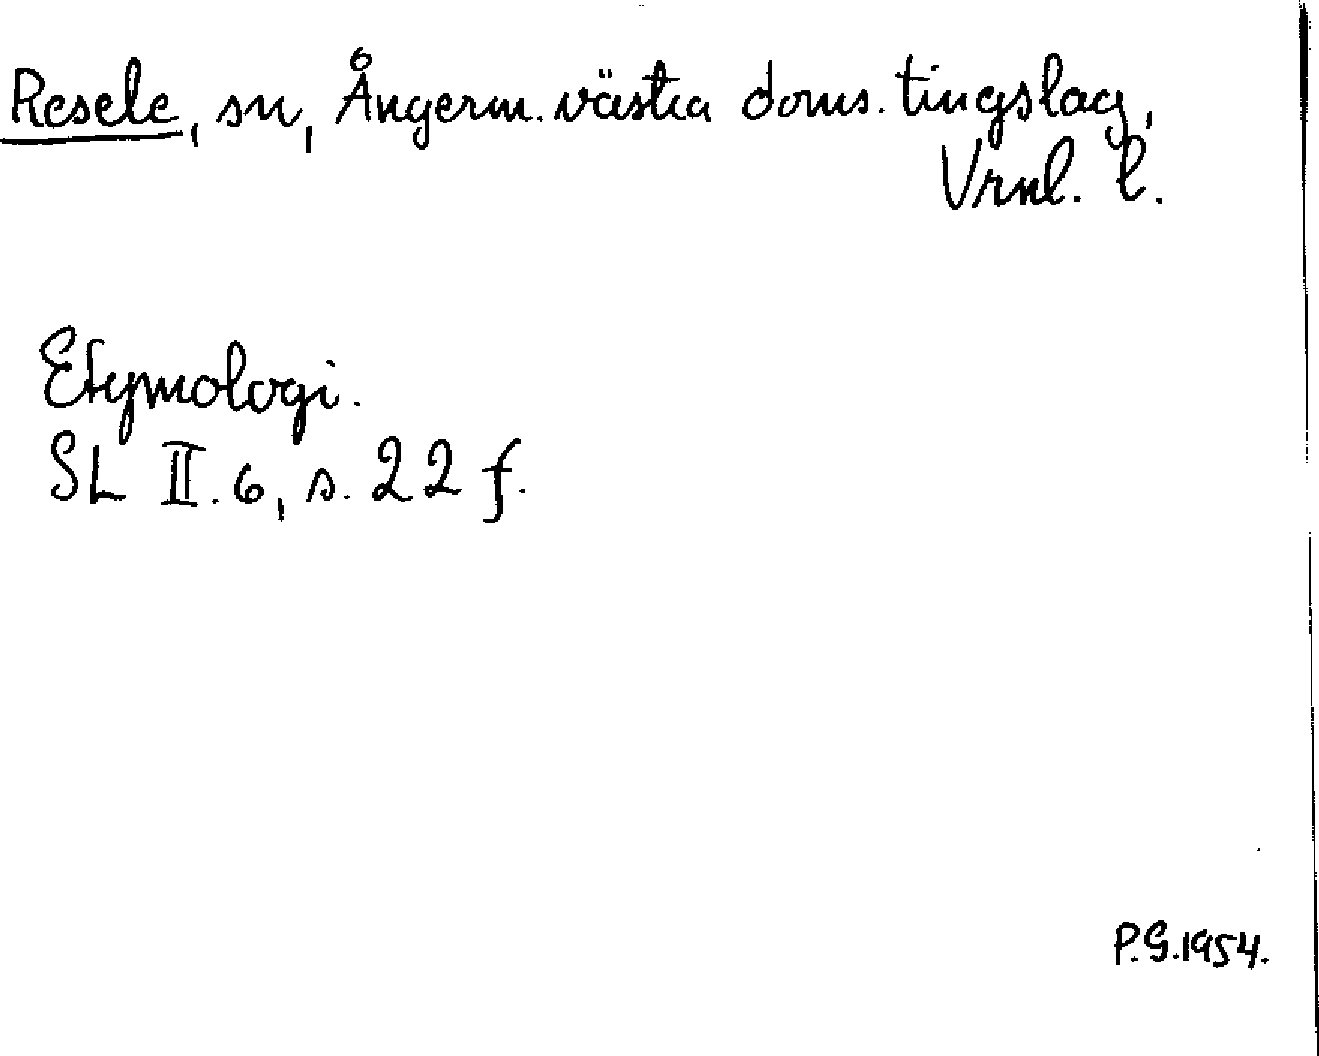 Resele, sn, Ångerm. västra doms. tingslag,
Vrnl. l.
Etymologi.
SL II.6, s. 22 f.
P.G.1954.